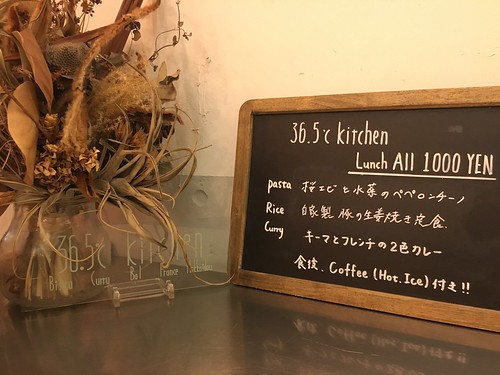 36.5℃ kitchen
Lunch All 1000 YEN
pasta 桜エビと水菜のペペロンチーノ
Rice 自家製 豚の生姜焼き定食.
Curry キーマとフレンチの2色カレー
食後. Coffee (Hot. Ice) 付き!!
36.5℃ kitchen
Curry Bal France